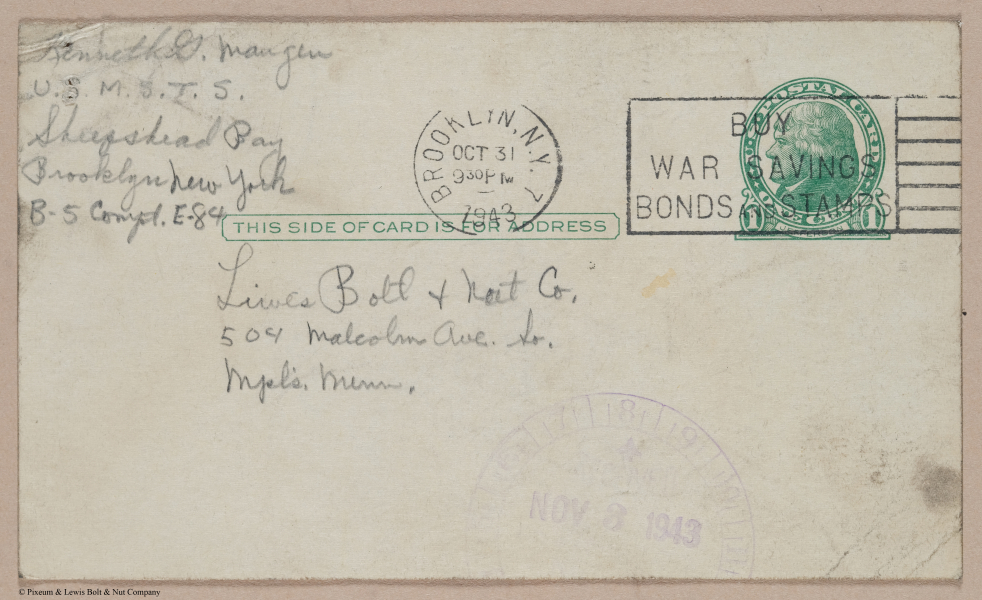 Kenneth G. Maugen
U.S.M.S.T.S.
Sheepshead Bay
Brooklyn New York
B-5 Compt. E-84
BROOKLYN, N.Y. 7
OCT 31
9 30 PM
1943
BUY
WAR SAVINGS
BONDS AND STAMPS
U.S. POSTAL CARD
ONE CENT
1 1
JEFFERSON
THIS SIDE OF CARD IS FOR ADDRESS
Liwes Bolt & Nut Co.
504 Malcolm Ave. So.
Mpls. Minn.
7 8 9
NOV. 8 1943
© Pixeum & Lewis Bolt & Nut Company